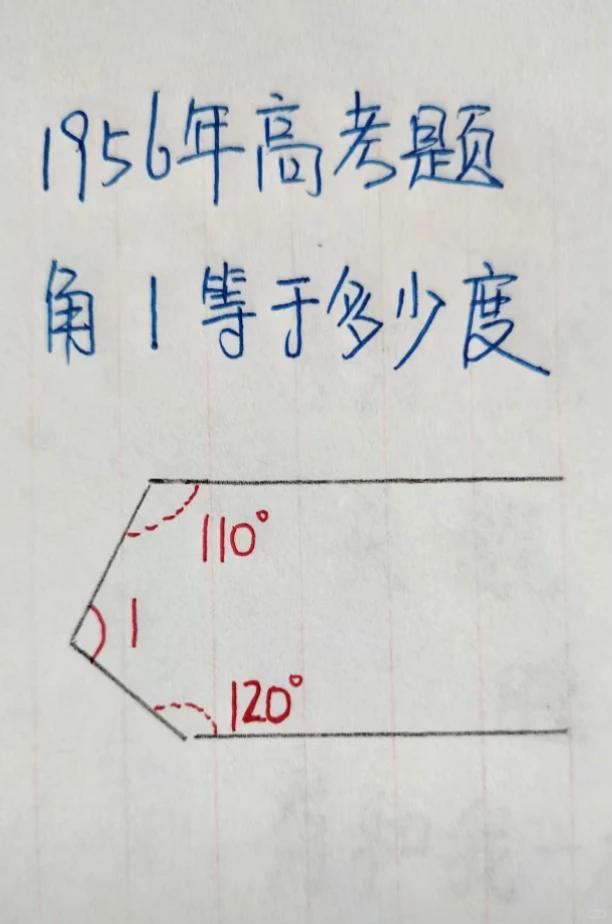 1956年高考题
角1等于多少度
110°
1
120°